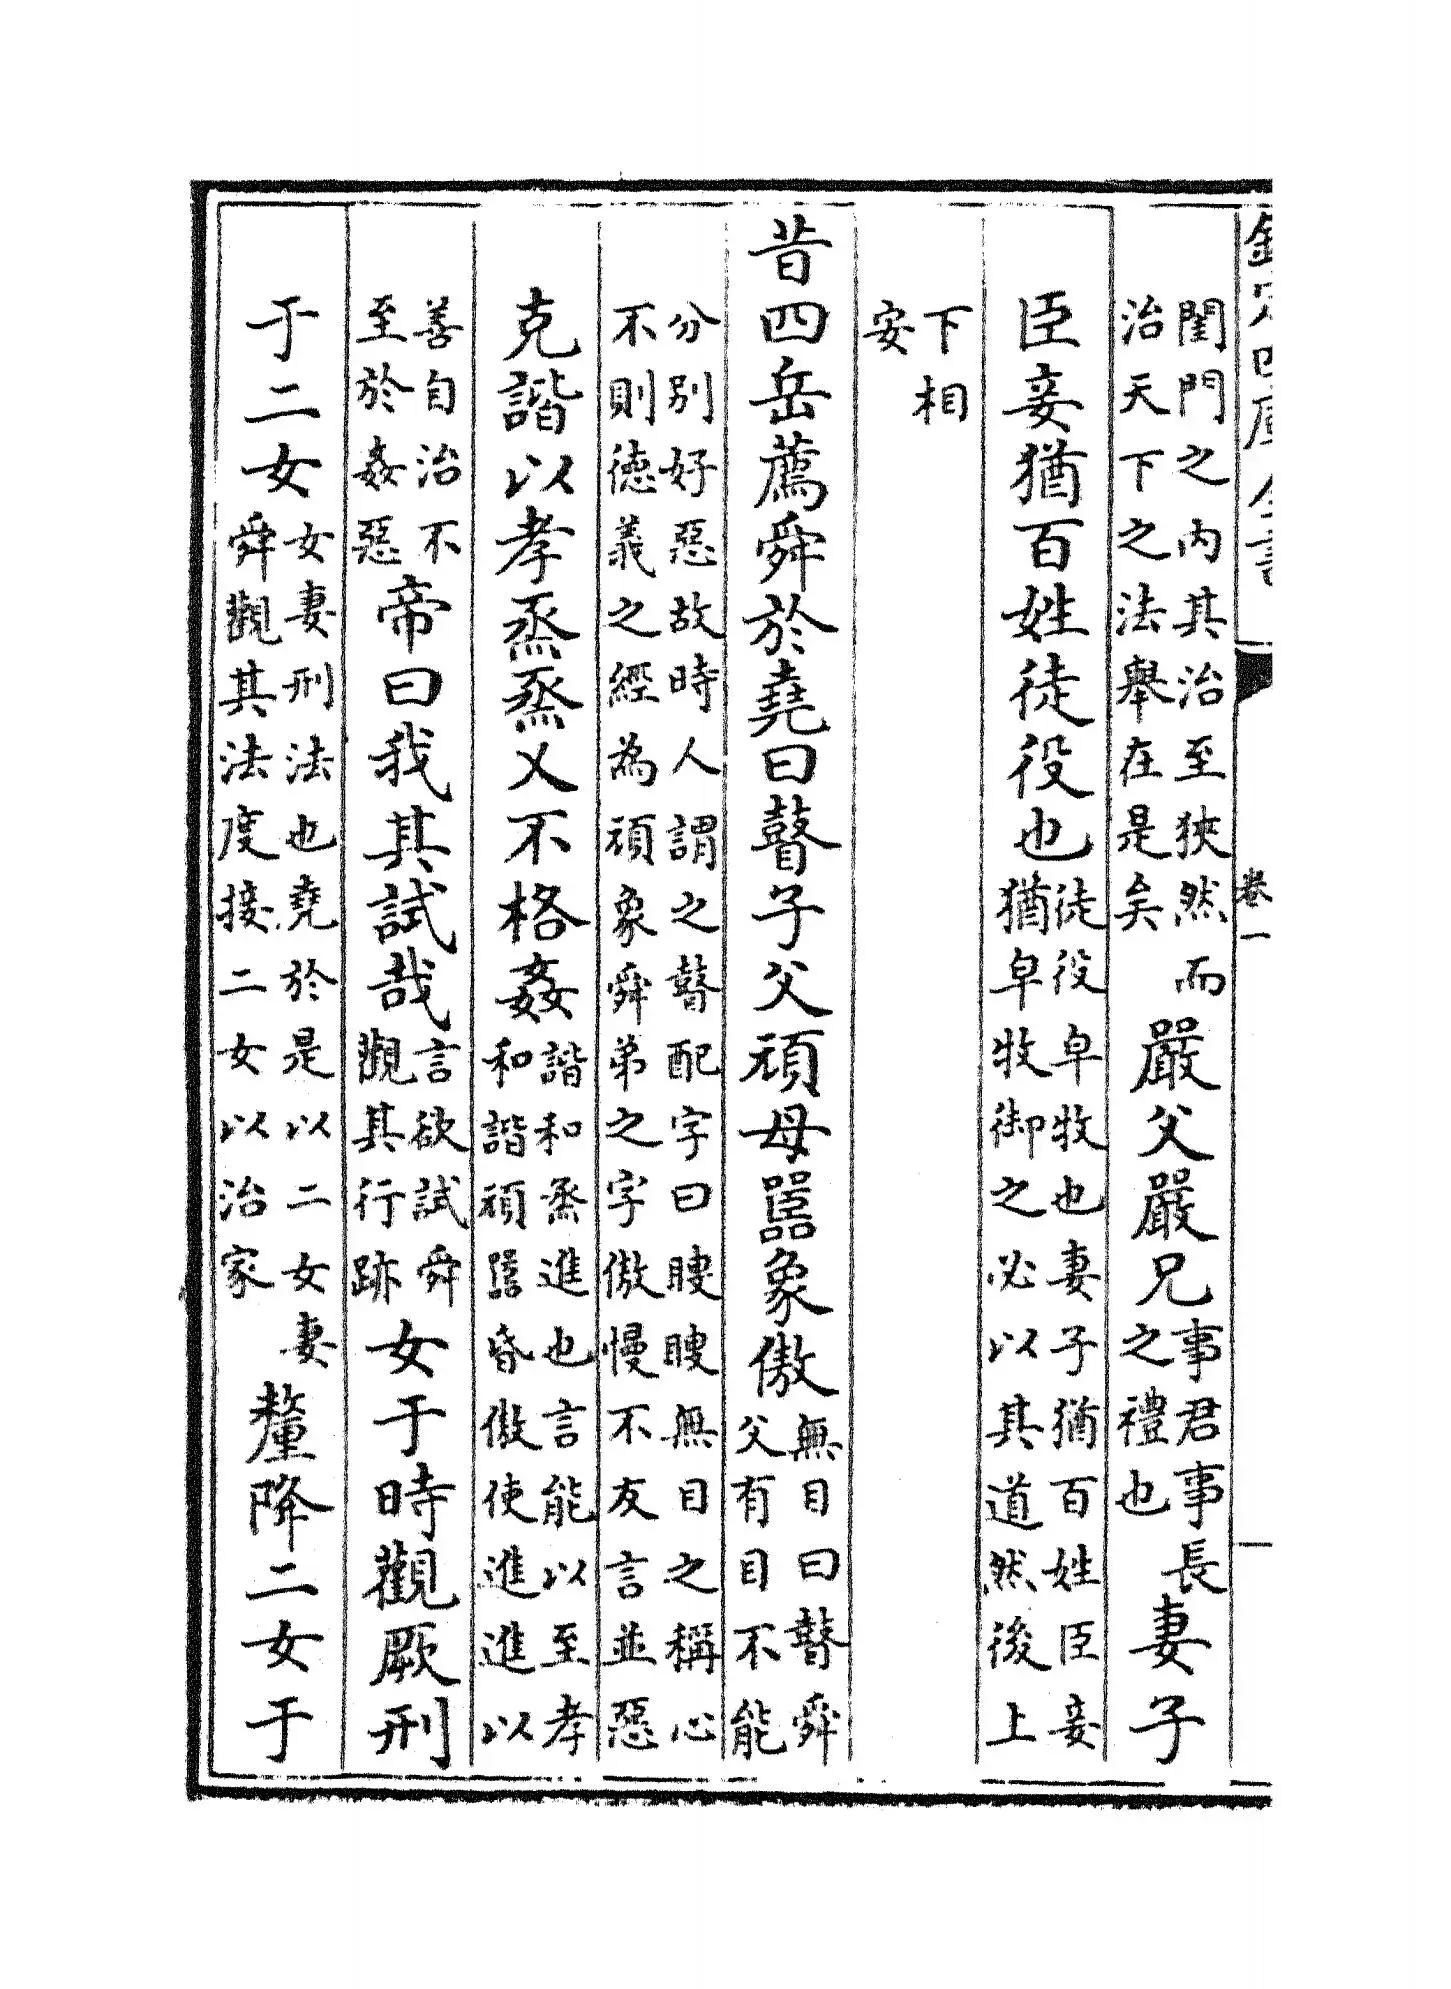 欽定四庫全書
卷一
閨門之内其治至狹然而
治天下之法舉在是矣
嚴父嚴兄
事君事長
之禮也
妻子
臣妾猶百姓徒役也
徒役皁牧也妻子猶百姓臣妾
猶皁牧御之必以其道然後上
下相
安
昔四岳薦舜於堯曰瞽子父頑母嚚象傲
無目曰瞽舜
父有目不能
分别好惡故時人謂之瞽配字曰瞍瞍無目之稱心
不則德義之經為頑象舜弟之字傲慢不友言並惡
克諧以孝烝烝乂不格姦
諧和烝進也言能以至孝
和諧頑嚚昏傲使進進以
善自治不
至於姦惡
帝曰我其試哉
言欲試舜
觀其行跡
女于時觀厥刑
于二女
女妻刑法也堯於是以二女妻
舜觀其法度接二女以治家
釐降二女于